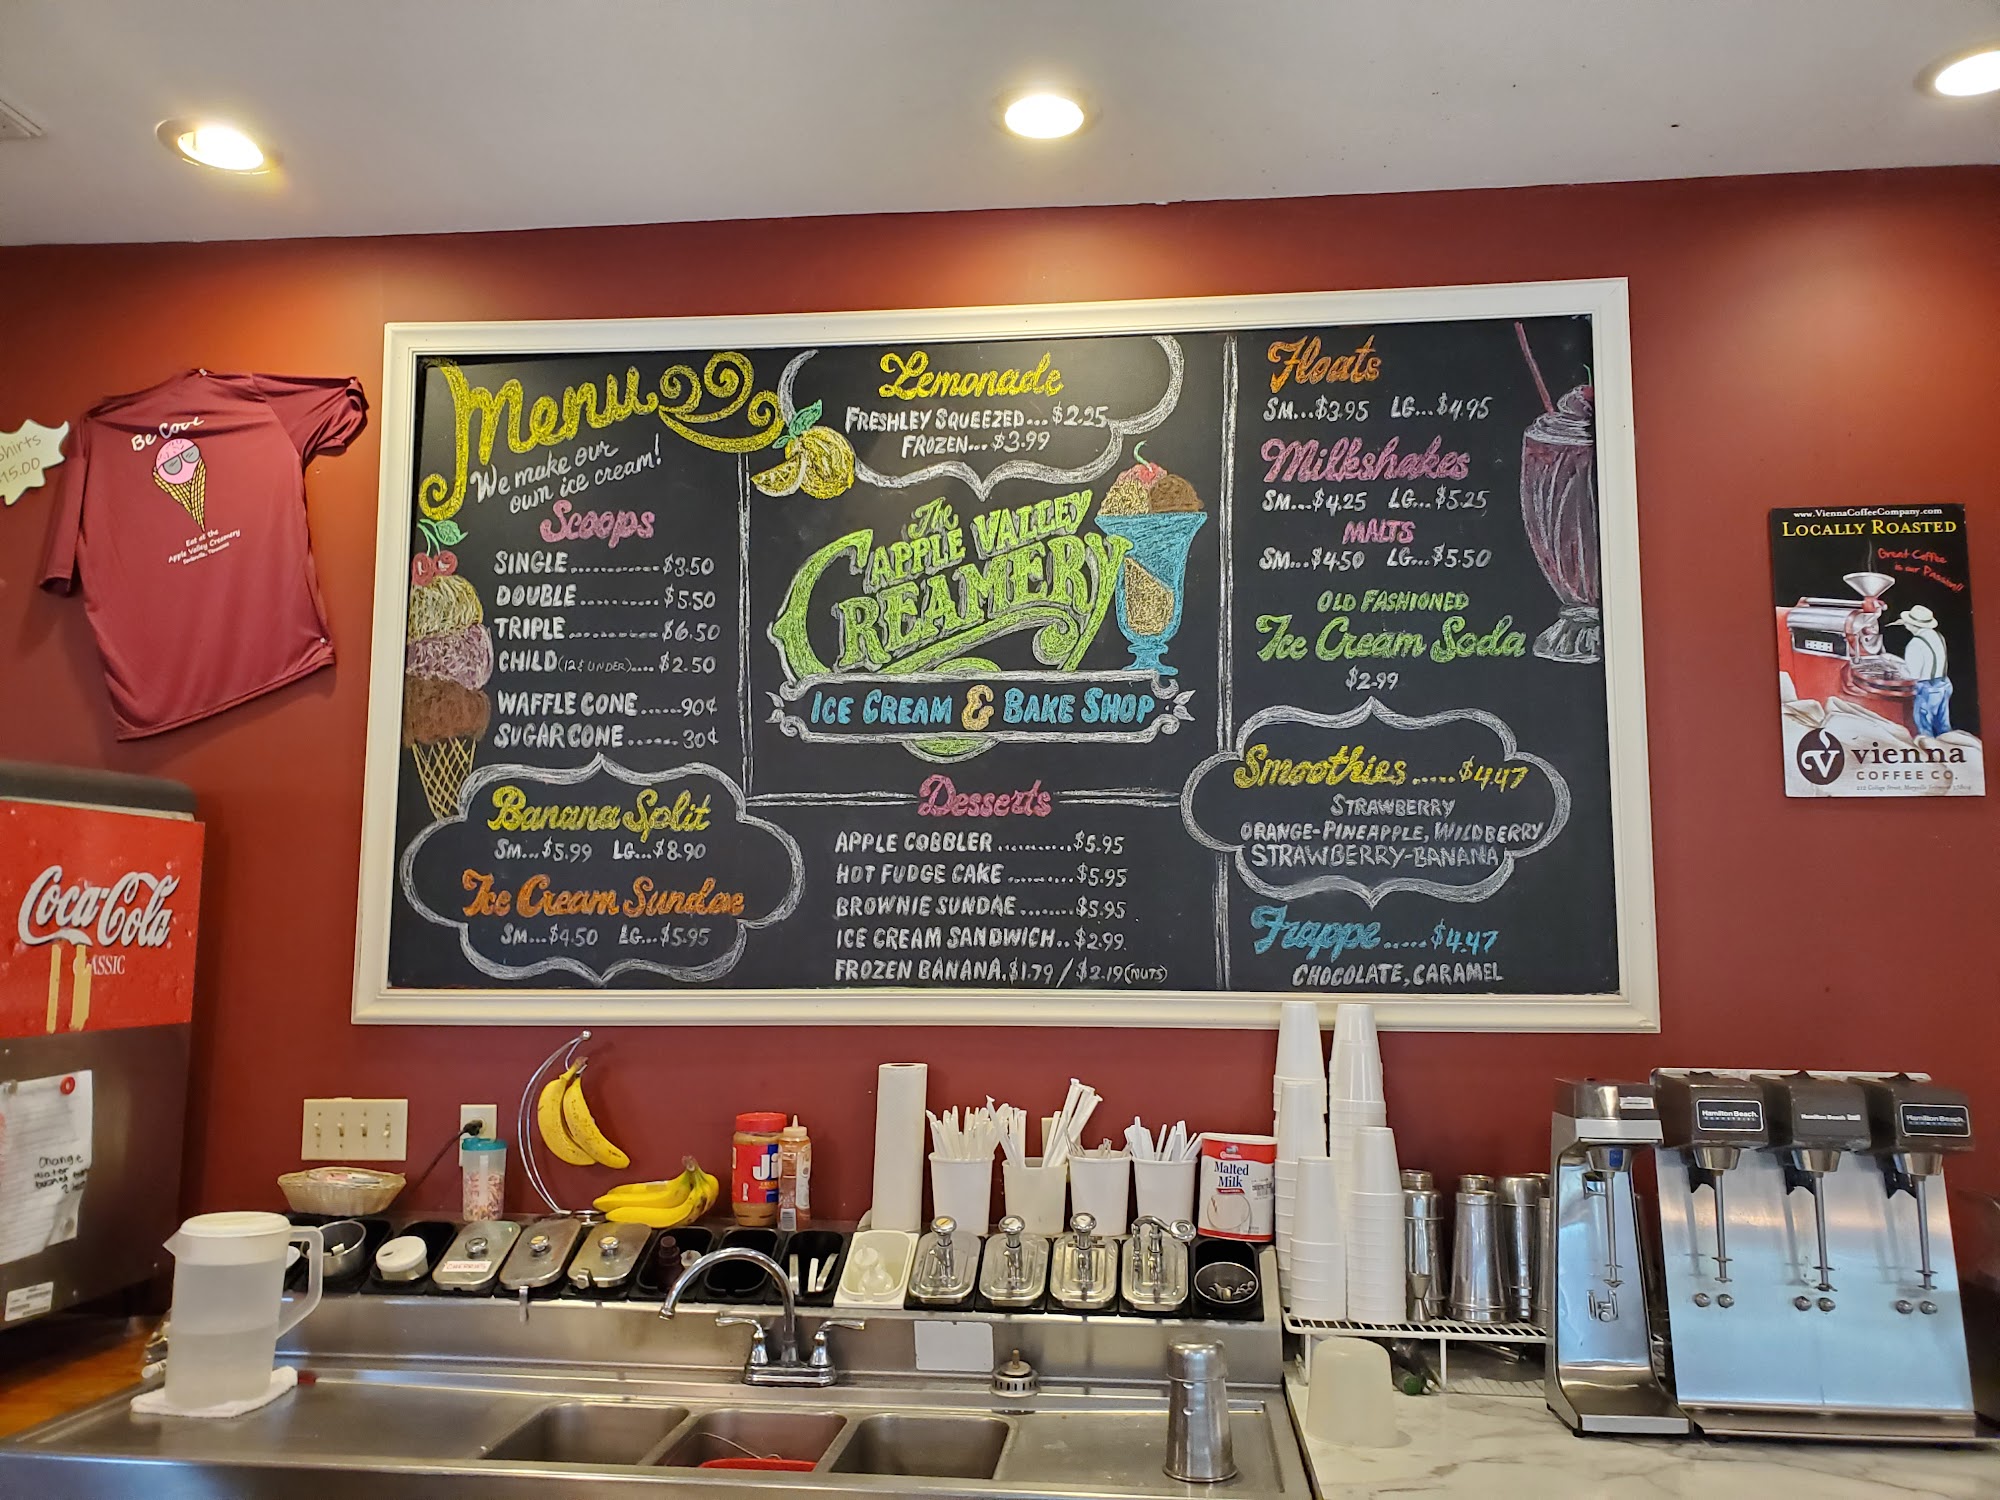 Shirts
$15.00
Be Cool
Eat at the
Apple Valley Creamery
Menu
We make our
own ice cream!
Scoops
SINGLE............$3.50
DOUBLE..........$5.50
TRIPLE............$6.50
CHILD (12 & UNDER)....$2.50
WAFFLE CONE......90¢
SUGAR CONE.......30¢
Banana Split
SM...$5.99 LG...$8.90
Ice Cream Sundae
SM...$4.50 LG...$5.95
Lemonade
FRESHLEY SQUEEZED...$2.25
FROZEN...$3.99
The
APPLE VALLEY
CREAMERY
ICE CREAM & BAKE SHOP
Desserts
APPLE COBBLER..........$5.95
HOT FUDGE CAKE.........$5.95
BROWNIE SUNDAE........$5.95
ICE CREAM SANDWICH..$2.99
FROZEN BANANA.$1.79/$2.19(NUTS)
Floats
SM...$3.95 LG...$4.95
Milkshakes
SM...$4.25 LG...$5.25
MALTS
SM...$4.50 LG...$5.50
OLD FASHIONED
Ice Cream Soda
$2.99
Smoothies.....$4.47
STRAWBERRY
ORANGE-PINEAPPLE, WILDBERRY
STRAWBERRY-BANANA
Frappe.....$4.47
CHOCOLATE, CARAMEL
www.ViennaCoffeeCompany.com
LOCALLY ROASTED
Great Coffee
is our Passion!!
V vienna
COFFEE CO.
Coca-Cola
CLASSIC
Change
water
2
Jif
Malted
Milk
CHERRIES
Hamilton Beach
COMMERCIAL
Hamilton Beach
Hamilton Beach